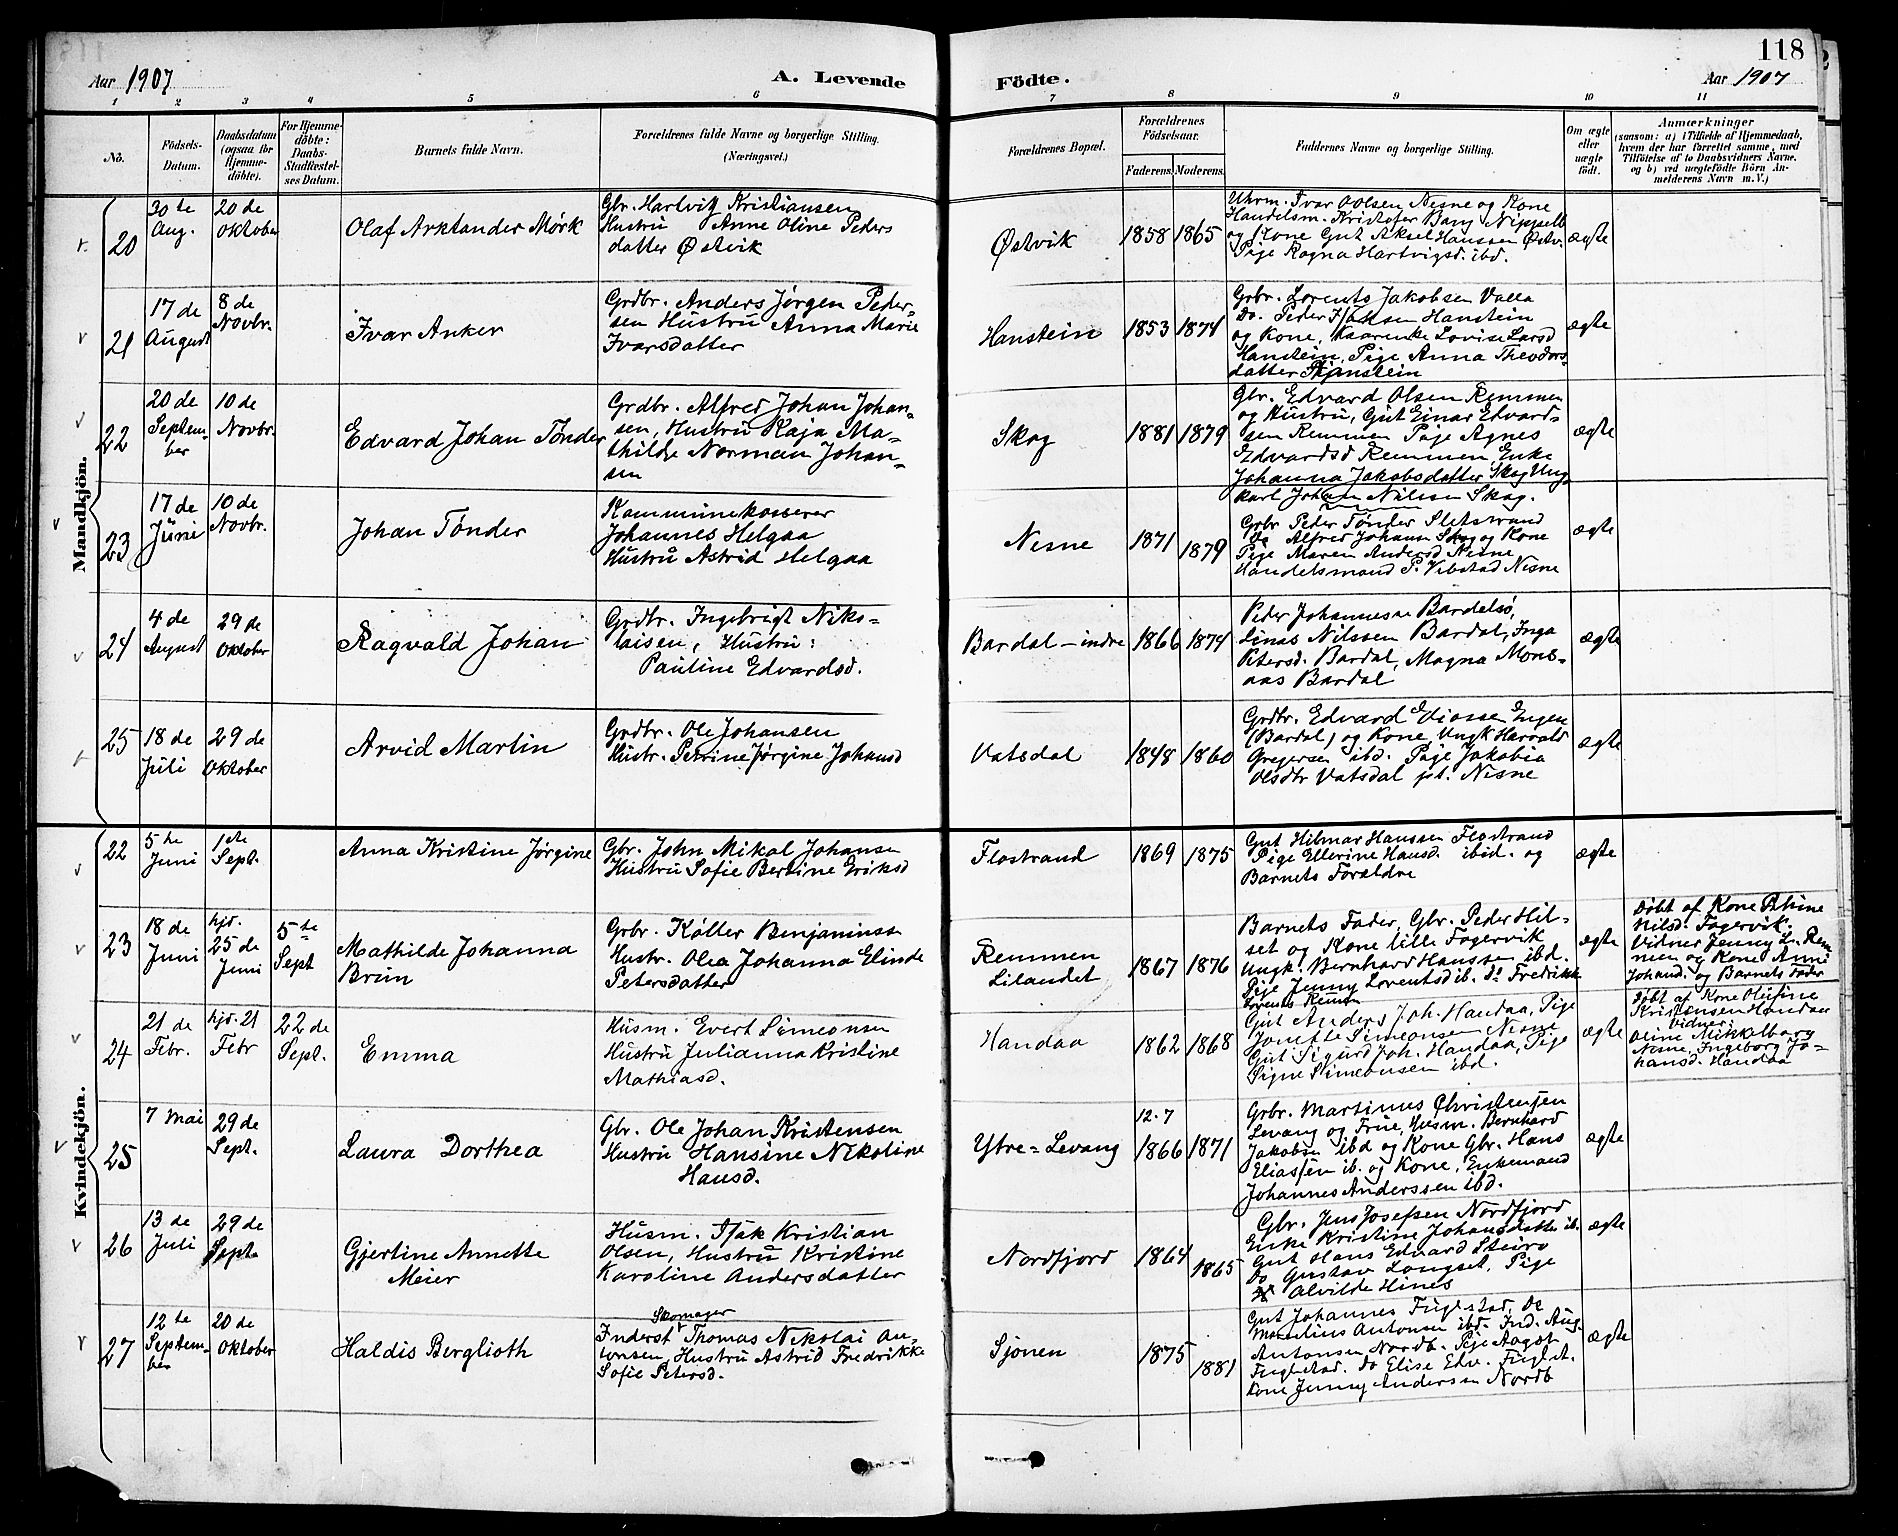 118
Aar 1907
A. Levende Födte.
Aar 1907
1 2 3 4 5 6 7 8 9 10 11
No.
Födsels-
Datum.
Daabsdatum
(ogsaa for
Hjemme-
döbte).
For Hjemme-
döbte:
Daabs-
Stadfæstel-
ses Datum.
Barnets fulde Navn.
Forældrenes fulde Navne og borgerlige Stilling.
(Næringsvei.)
Forældrenes Bopæl.
Forældrenes
Födselsaar.
Faderens. Moderens.
Faddernes Navne og borgerlige Stilling.
Om ægte
eller
uægte
født.
Anmærkninger
(saasom: a) i Tilfælde af Hjemmedaab,
hvem der har forrettet samme, med
Tilföielse af to Daabsvidners Navne.
og b) ved uægtefödte Börn An-
melderens Navn m.V.)
Mandkjön.
20
30 te
Aug.
20 de
Oktober
Olaf Arktander Mørk
Gbr. Hartvig Kristiansen
Hustru Anne Oline Peders
datter Østvik
Østvik
1858 1865
Uhrm. Ivar Olsen Nesne og Kone
Handelsm. Kristofer Bang
og Kone Gut Aksel Hanssen Østv.
Pige Ragna Hartvigsd. ibd.
ægte
21
17 de
August
8 de
Novbr.
Ivar Anker
Grdbr. Anders Jørgen Peder-
sen Hustru Anna Marie
Ivarsdatter
Hanstein
1853 1874
Grbr. Lorents Jakobsen Valla
Do. Peder Isaksen Hanstein
og Kone, Kaarenke Lovise Larsd
Hanstein, Pige Anna Theodors-
datter Hanstein
ægte
22
20 de
Septem-
ber
10 de
Novbr.
Edvard Johan Tønder
Grdbr. Alfred Johan Johan-
sen, Hustru Kaja Ma-
thilde Norman Johan-
sen
Skog
1881 1879
Gbr. Edvard Olsen Remmen
og Hustru, Gut Einar Edvard-
sen Remmen Pige Agnes
Edvardsd Remmen, Enke
Johanna Jakobsdatter Skog Ung.
Karl Johan Nilsen Skog.
ægte
23
17 de
Juni
10 de
Novbr.
Johan Tønder
Kommunekasserer
Johannes Helgaa
Hustru Astrid Helgaa
Nesne
1871 1879
Grbr Peder Tønder Sletstrand
Do Alfred Johansen Skog og Kone
Pige Maren Andersd Nesne
Handelsmand P. Vibstad Nesne
ægte
24
4 de
August
29 de
Oktober
Ragvald Johan
Grdbr. Ingebrigt Niko-
laisen, Hustru:
Pauline Edvardsd.
Bardal - indre
1866 1874
Peder Johannesen Bardalsø,
Linas Nilssen Bardal, Inga
Petersd. Bardal, Magna Mons-
aas Bardal
ægte
25
18 de
Juli
29 de
Oktober
Arvid Martin
Grdbr. Ole Johansen
Hustr. Petrine Jørgine Johansd
Vatsdal
1848 1860
Grdbr. Edvard Eliassen Engen
(Bardal) og Kone Ungk Harvald
Gregersen ibd. Pige Jakobia
Olsdtr Vatsdal pt. Nesne
ægte
Kvindekjön.
22
5 te
Juni
1 ste
Sept.
Anna Kristine Jørgine
Gbr. John Mikal Johansen
Hustru Sofie Bertine Eriksd
Flostrand
1869 1875
Gut Hilmar Hanssen Flostrand
Pige Ellerine Hansd. ibid. og
Barnets Forældre
ægte
23
18 de
Juni
hjd.
25 de
Juni
5 te
Sept
Mathilde Johanna
Brun
Grbr. Køller Benjaminss
Hustr. Olea Johanna Elinde
Petersdatter
Remmen
Lilandet
1867 1876
Barnets Fader, Gbr. Peder Hil-
set og Kone lille Fagervik
Ungk. Bernhard Hanssen ibd.
Pige Jenny Lorentsd ib. Do Fredrikke
Lorents Remmen
ægte
Døbt af Kone Petrine
Nilsd. Fagervik.
Vidner Jenny L. Rem
men og Kone Anne
Johansd. og Barnets Fader
24
21 de
Febr.
hjd. 21
Febr
22 de
Sept.
Emma
Husm. Evert Simeonsen
Hustru Julianna Kristine
Mathiasd.
Handaa
1862 1868
Gut Anders Joh. Handaa, Pige
Josefte Simeonsen Nesne
Gut Sigurd Joh. Handaa, Pige
Signe Simeonsen ibd.
ægte
Døbt af Kone Olufine
Kristensen Handaa
Vidner:
Oline Mikkelborg
Nesne, Ingeborg Jo-
hansd. Handaa
25
7 Mai
29 de
Sept.
Laura Dorthea
Gbr. Ole Johan Kristensen
Hustru Hansine Nikoline
Hansd.
Ytre = Levang
12-7
1866 1871
Grbr. Martinus Christensen
Levang og Frue, Husm. Bernhard
Jakobsen ibd og Kone Gbr. Hans
Eliassen ib. og Kone, Enkemand
Johannes Anderssen ibd.
ægte
26
13 de
Juli
29 de
Septe
Gjertine Annette
Meier
Husm. Isak Kristian
Olsen, Hustru Kristine
Karoline Andersdatter
Nordfjord
1864 1865
Gbr. Jens Josefsen Nordfjord
Enke Kristine Johansdatter ib.
Gut Hans Edvard Steiro
Do Gustav Longset, Pige
Alvilde Hines
ægte
27
12 te
Septem-
ber
20 de
Oktober
Haldis Berglioth
Skomager
Inderst Thomas Nikolai An-
tonsen, Hustru Astrid Fredrikke
Sofie Petersd.
Sjonen
1875 1881
Gut Johannes Fuglestad, Do
Martilius Antonsen ibd. Ind. Aug.
Antonsen Nordb. Pige Aagot
Fuglestad. Do Elise Edv. Fuglst.
Kone Jenny Anderssen Nordb
ægte